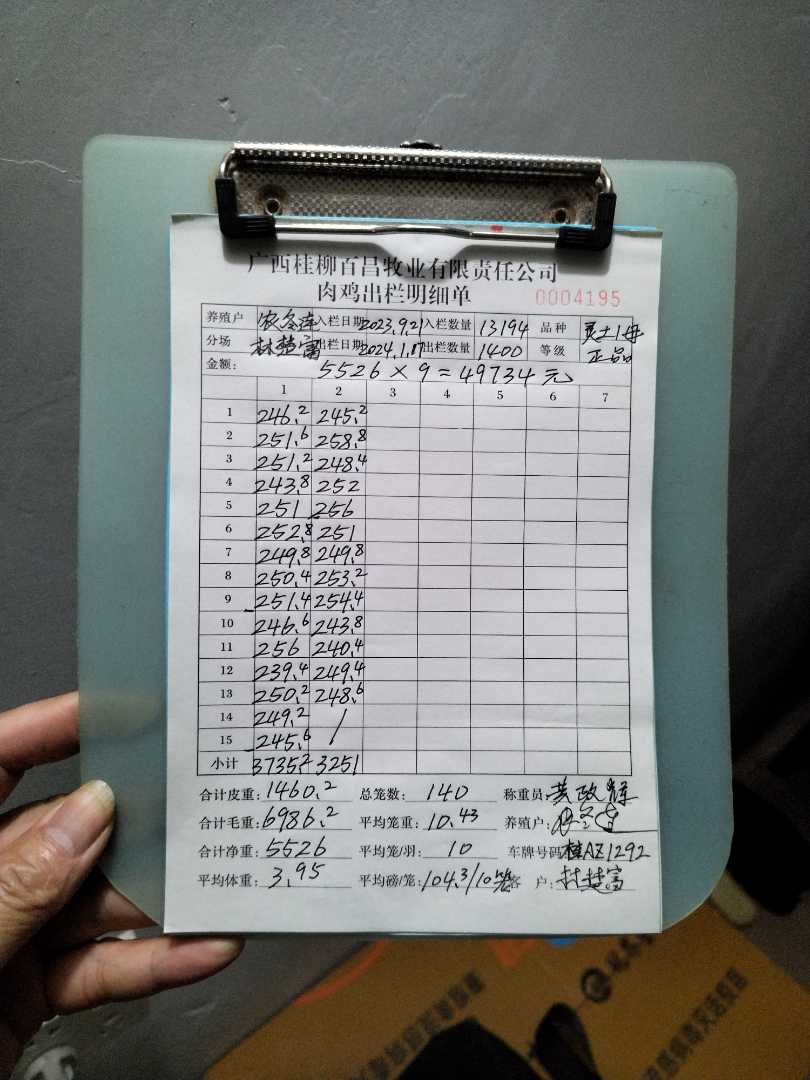 广西桂柳百昌牧业有限责任公司
肉鸡出栏明细单 0004195
养殖户 农冬莲 入栏日期 2023.9.21 入栏数量 13194 品种 灵土1母
分场 林楚富 出栏日期 2024.1.17 出栏数量 1400 等级 正品
金额: 5526 × 9 = 49734元
1 2 3 4 5 6 7
1 246.2 245.2
2 251.6 258.8
3 251.2 248.4
4 243.8 252
5 251 256
6 252.8 251
7 249.8 249.8
8 250.4 253.2
9 251.4 254.4
10 246.6 243.8
11 256 240.4
12 239.4 249.4
13 250.2 248.6
14 249.2 /
15 245.6
小计 3735.2 3251
合计皮重: 1460.2 总笼数: 140 称重员:
合计毛重: 6986.2 平均笼重: 10.43 养殖户:
合计净重: 5526 平均笼/羽: 10 车牌号码: 桂AZ1292
平均体重: 3.95 平均磅/笼: 104.3/10 客 户: 林楚富